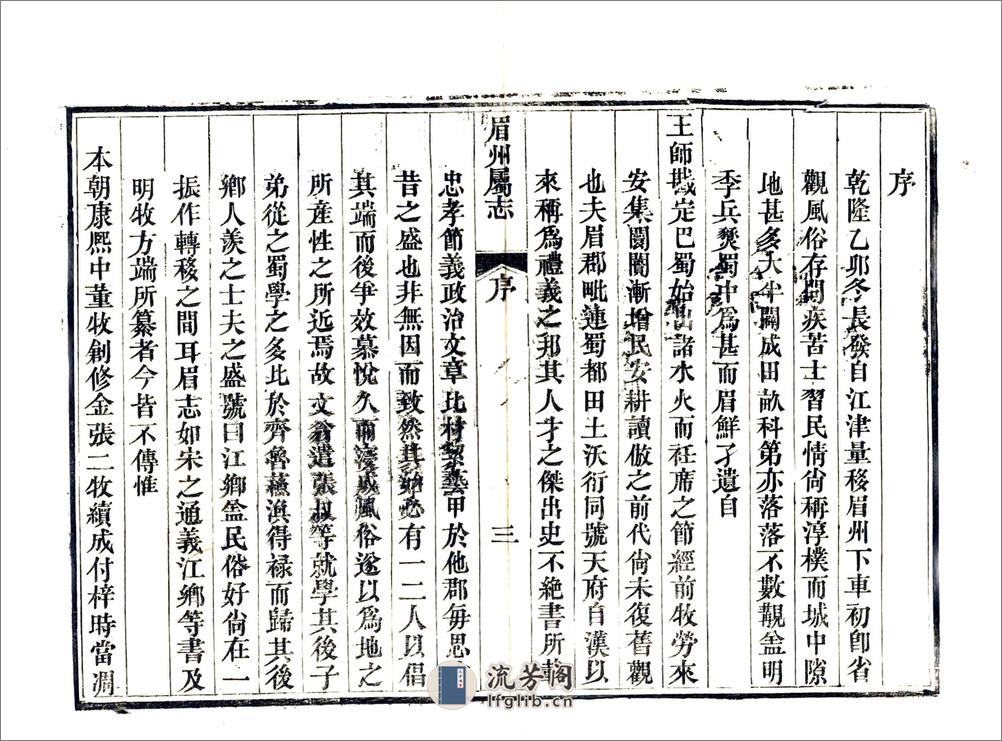 序
乾隆乙卯冬長發自江津量移眉州下車初卽省
觀風俗存問疾苦士習民情尙稱淳樸而城中隙
地甚多大半闢成田畝科第亦落落不數覯盖明
季兵燹蜀中爲甚而眉鮮孑遺自
王師戡定巴蜀始出諸水火而袵席之節經前牧勞來
安集闤闠漸增民安耕讀倣之前代尙未復舊觀
也夫眉郡毗連蜀都田土沃衍同號天府自漢以
來稱爲禮義之邦其人才之傑出史不絶書所載
眉州屬志
序
三
忠孝節義政治文章比材絜藝甲於他郡每思
昔之盛也非無因而致然其始必有一二人以倡
其端而後爭效慕悅久而漸成風俗遂以爲地之
所産性之所近焉故文翁遣張叔等就學其後子
弟從之蜀學之多比於齊魯蘇洪得祿而歸其後
鄉人羨之士夫之盛號曰江鄉盖民俗好尙在一
振作轉移之間耳眉志如宋之通義江鄉等書及
明牧方端所纂者今皆不傳惟
本朝康熙中董牧創修金張二牧續成付梓時當凋
流芳阁
lfglib.cn